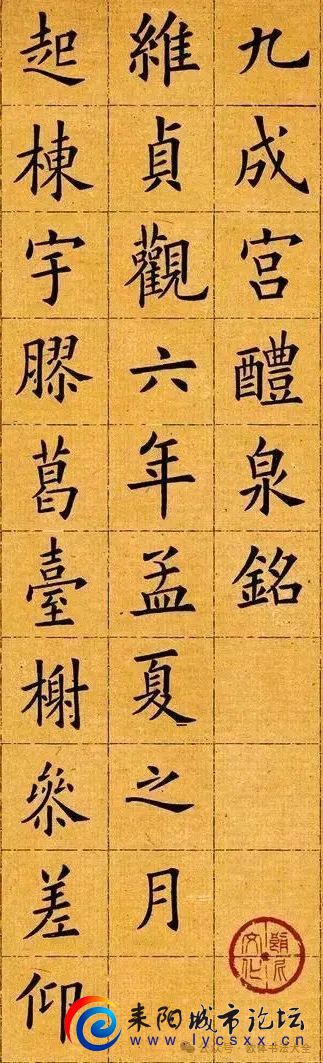 九成宮醴泉銘
維貞觀六年孟夏之月
起棟宇膠葛臺榭叅差仰
耒阳城市论坛
www.lycsxx.cn
公众号 · 欧体书法大全